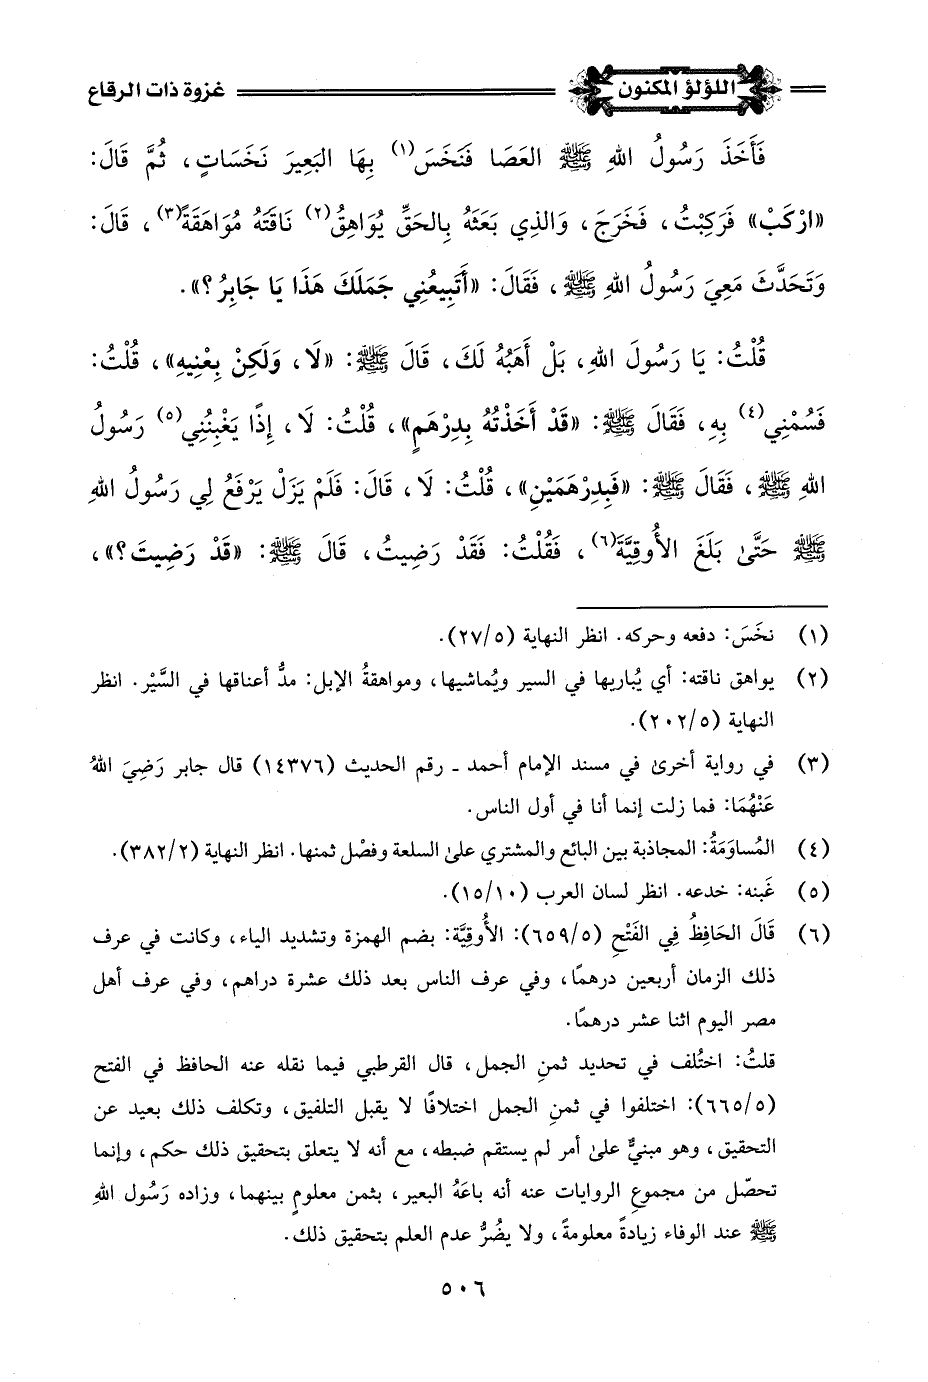 اللؤلؤ المكنون غزوة ذات الرقاع
فَأَخَذَ رَسُولُ اللهِ ﷺ العَصَا فَنَخَسَ(١) بِهَا البَعِيرَ نَخَسَاتٍ، ثُمَّ قَالَ:
«ارْكَبْ» فَرَكِبْتُ، فَخَرَجَ، وَالذِي بَعَثَهُ بِالحَقِّ يُوَاهِقُ(٢) نَاقَتَهُ مُوَاهَقَةً(٣)، قَالَ:
وَتَحَدَّثَ مَعِيَ رَسُولُ اللهِ ﷺ، فَقَالَ: «أَتَبِيعُنِي جَمَلَكَ هَذَا يَا جَابِرُ؟».
قُلْتُ: يَا رَسُولَ اللهِ، بَلْ أَهَبُهُ لَكَ، قَالَ ﷺ: «لَا، وَلَكِنْ بِعْنِيهِ»، قُلْتُ:
فَسُمْنِي(٤) بِهِ، فَقَالَ ﷺ: «قَدْ أَخَذْتُهُ بِدِرْهَمٍ»، قُلْتُ: لَا، إِذًا يَغْبِنُنِي(٥) رَسُولُ
اللهِ ﷺ، فَقَالَ ﷺ: «فَبِدِرْهَمَيْنِ»، قُلْتُ: لَا، قَالَ: فَلَمْ يَزَلْ يَرْفَعُ لِي رَسُولُ اللهِ
ﷺ حَتَّىٰ بَلَغَ الأُوقِيَّةَ(٦)، فَقُلْتُ: فَقَدْ رَضِيتُ، قَالَ ﷺ: «قَدْ رَضِيتَ؟»،
(١) نخَسَ: دفعه وحركه. انظر النهاية (٢٧/٥).
(٢) يواهق ناقته: أي يُباريها في السير ويُماشيها، ومواهقةُ الإبل: مدُّ أعناقها في السَّيْر. انظر
النهاية (٢٠٢/٥).
(٣) في رواية أخرىٰ في مسند الإمام أحمد ـ رقم الحديث (١٤٣٧٦) قال جابر رَضِيَ اللهُ
عَنْهُمَا: فما زلت إنما أنا في أول الناس.
(٤) المُساوَمَةُ: المجاذبة بين البائع والمشتري علىٰ السلعة وفصْل ثمنها. انظر النهاية (٣٨٢/٢).
(٥) غَبنه: خدعه. انظر لسان العرب (١٥/١٠).
(٦) قَالَ الحَافِظُ فِي الفَتْحِ (٦٥٩/٥): الأُوقِيَّة: بضم الهمزة وتشديد الياء، وكانت في عرف
ذلك الزمان أربعين درهمًا، وفي عرف الناس بعد ذلك عشرة دراهم، وفي عرف أهل
مصر اليوم اثنا عشر درهمًا.
قلتُ: اختُلف في تحديد ثمنِ الجمل، قال القرطبي فيما نقله عنه الحافظ في الفتح
(٦٦٥/٥): اختلفوا في ثمنِ الجمل اختلافًا لا يقبل التلفيق، وتكلف ذلك بعيد عن
التحقيق، وهو مبنيٌّ علىٰ أمر لم يستقم ضبطه، مع أنه لا يتعلق بتحقيق ذلك حكم، وإنما
تحصّل من مجموعِ الروايات عنه أنه باعَهُ البعير، بثمن معلومٍ بينهما، وزاده رَسُول اللهِ
ﷺ عند الوفاء زيادةً معلومةً، ولا يضُرُّ عدم العلم بتحقيق ذلك.
٥٠٦